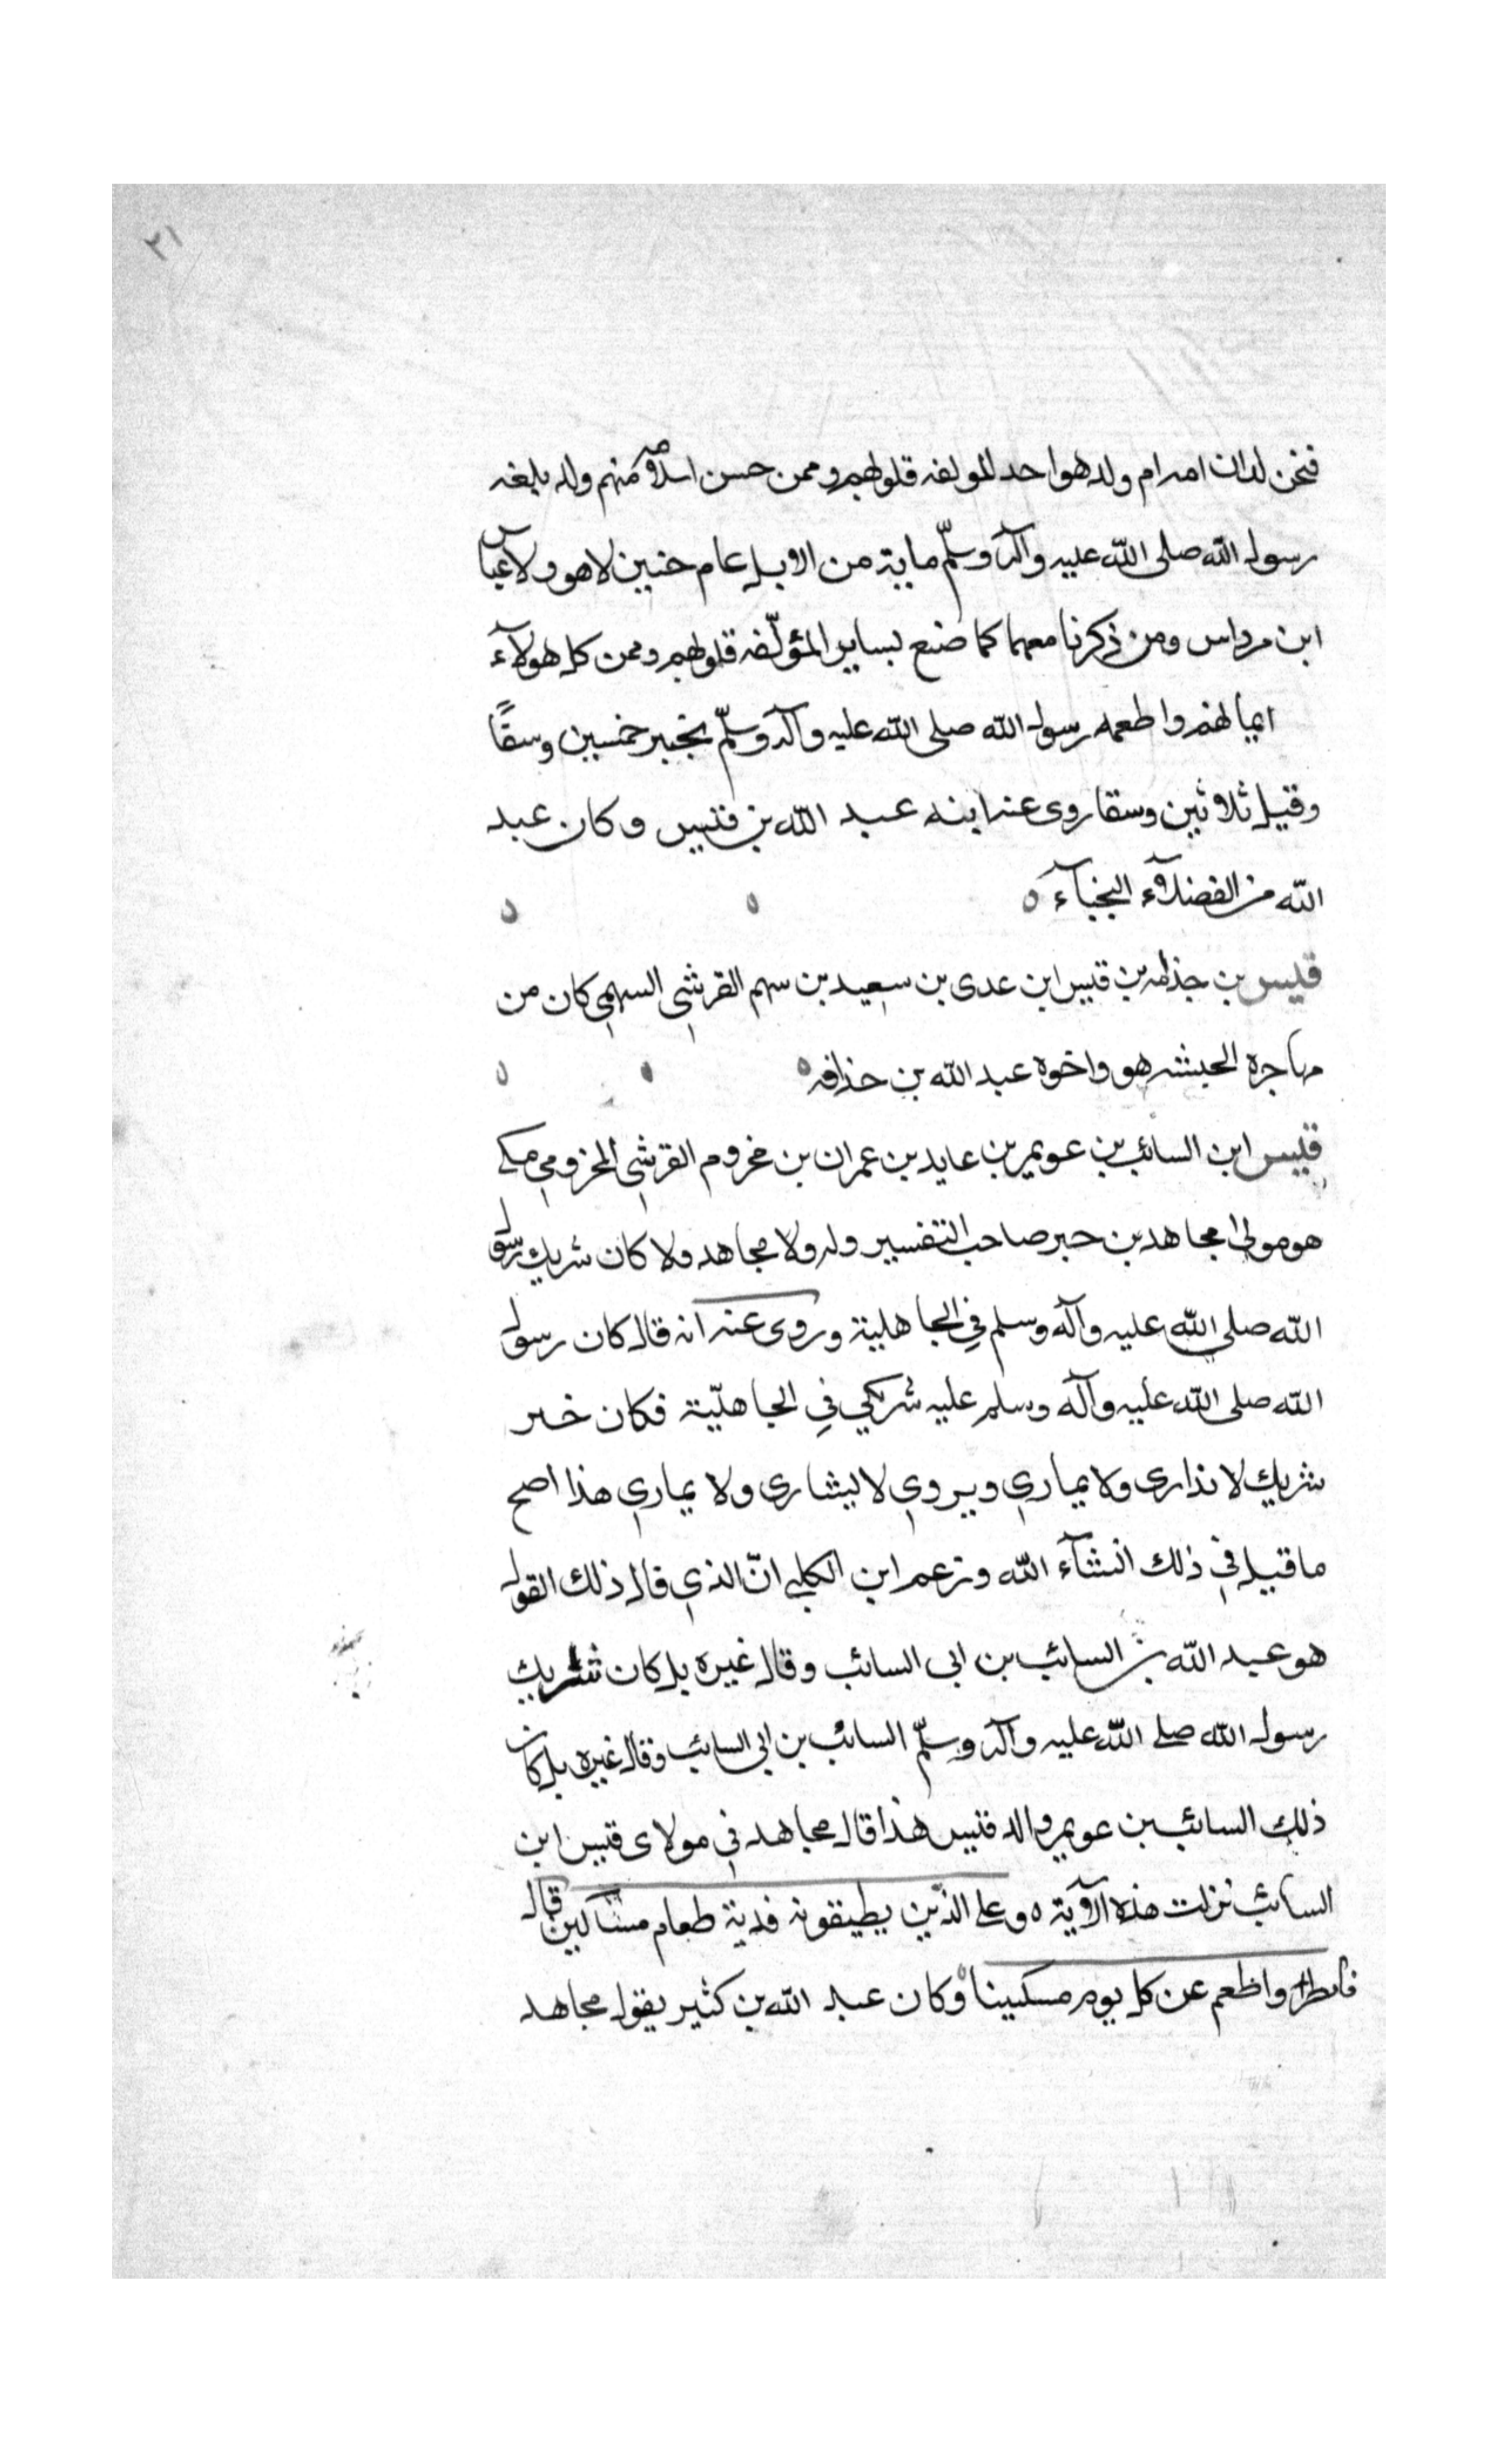 ٢١
فنحن لدان امرام ولد هو احد المولفه قلوبهم وممن حسن اسلامه منهم ولم يبلغه
رسول الله صلى الله عليه وآله وسلّم ماية من الابل عام حنين لا هو ولا عباس
ابن مرداس ومن ذكرنا معهما كما صنع بساير المؤلّفه قلوبهم وممن كل هولآء
ايمانهم واطعمه رسول الله صلى الله عليه وآله وسلّم بخيبر خمسين وسقًا
وقيل ثلاثين وسقا روى عنه ابنه عبد الله بن قيس وكان عبد
الله من الفضلآء النجبآء
قيس بن حذافه بن قيس ابن عدى بن سعيد بن سهم القرشي السهمي كان من
مهاجرة الحبشه هو واخوه عبد الله بن حذافه
قيس ابن السائب بن عويمر بن عايد بن عمران بن مخزوم القرشي المخزومي مكي
هو مولى مجاهد بن جبر صاحب التفسير وله ولا مجاهد ولا كان شريك رسول
الله صلى الله عليه وآله وسلم في الجاهلية وروى عنه انه قال كان رسول
الله صلى الله عليه وآله وسلم عليه شريكي في الجاهليّة فكان خير
شريك لا يدارى ولا يماري ويروي لا يشارى ولا يماري هذا اصح
ما قيل في ذلك انشآء الله وزعم ابن الكلبي انّ الذي قال ذلك القول
هو عبد الله بن السائب بن ابى السائب وقال غيره بل كان شريك
رسول الله صلى الله عليه وآله وسلّم السائب بن ابى السائب وقال غيره بل كان
ذلك السائب بن عويمر والد قيس هذا قال مجاهد في مولاى قيس ابن
السائب نزلت هذه الآية وعلى الذين يطيقونه فدية طعام مساكين قال
فافطر واطعم عن كل يوم مسكينا وكان عبد الله بن كثير يقول مجاهد